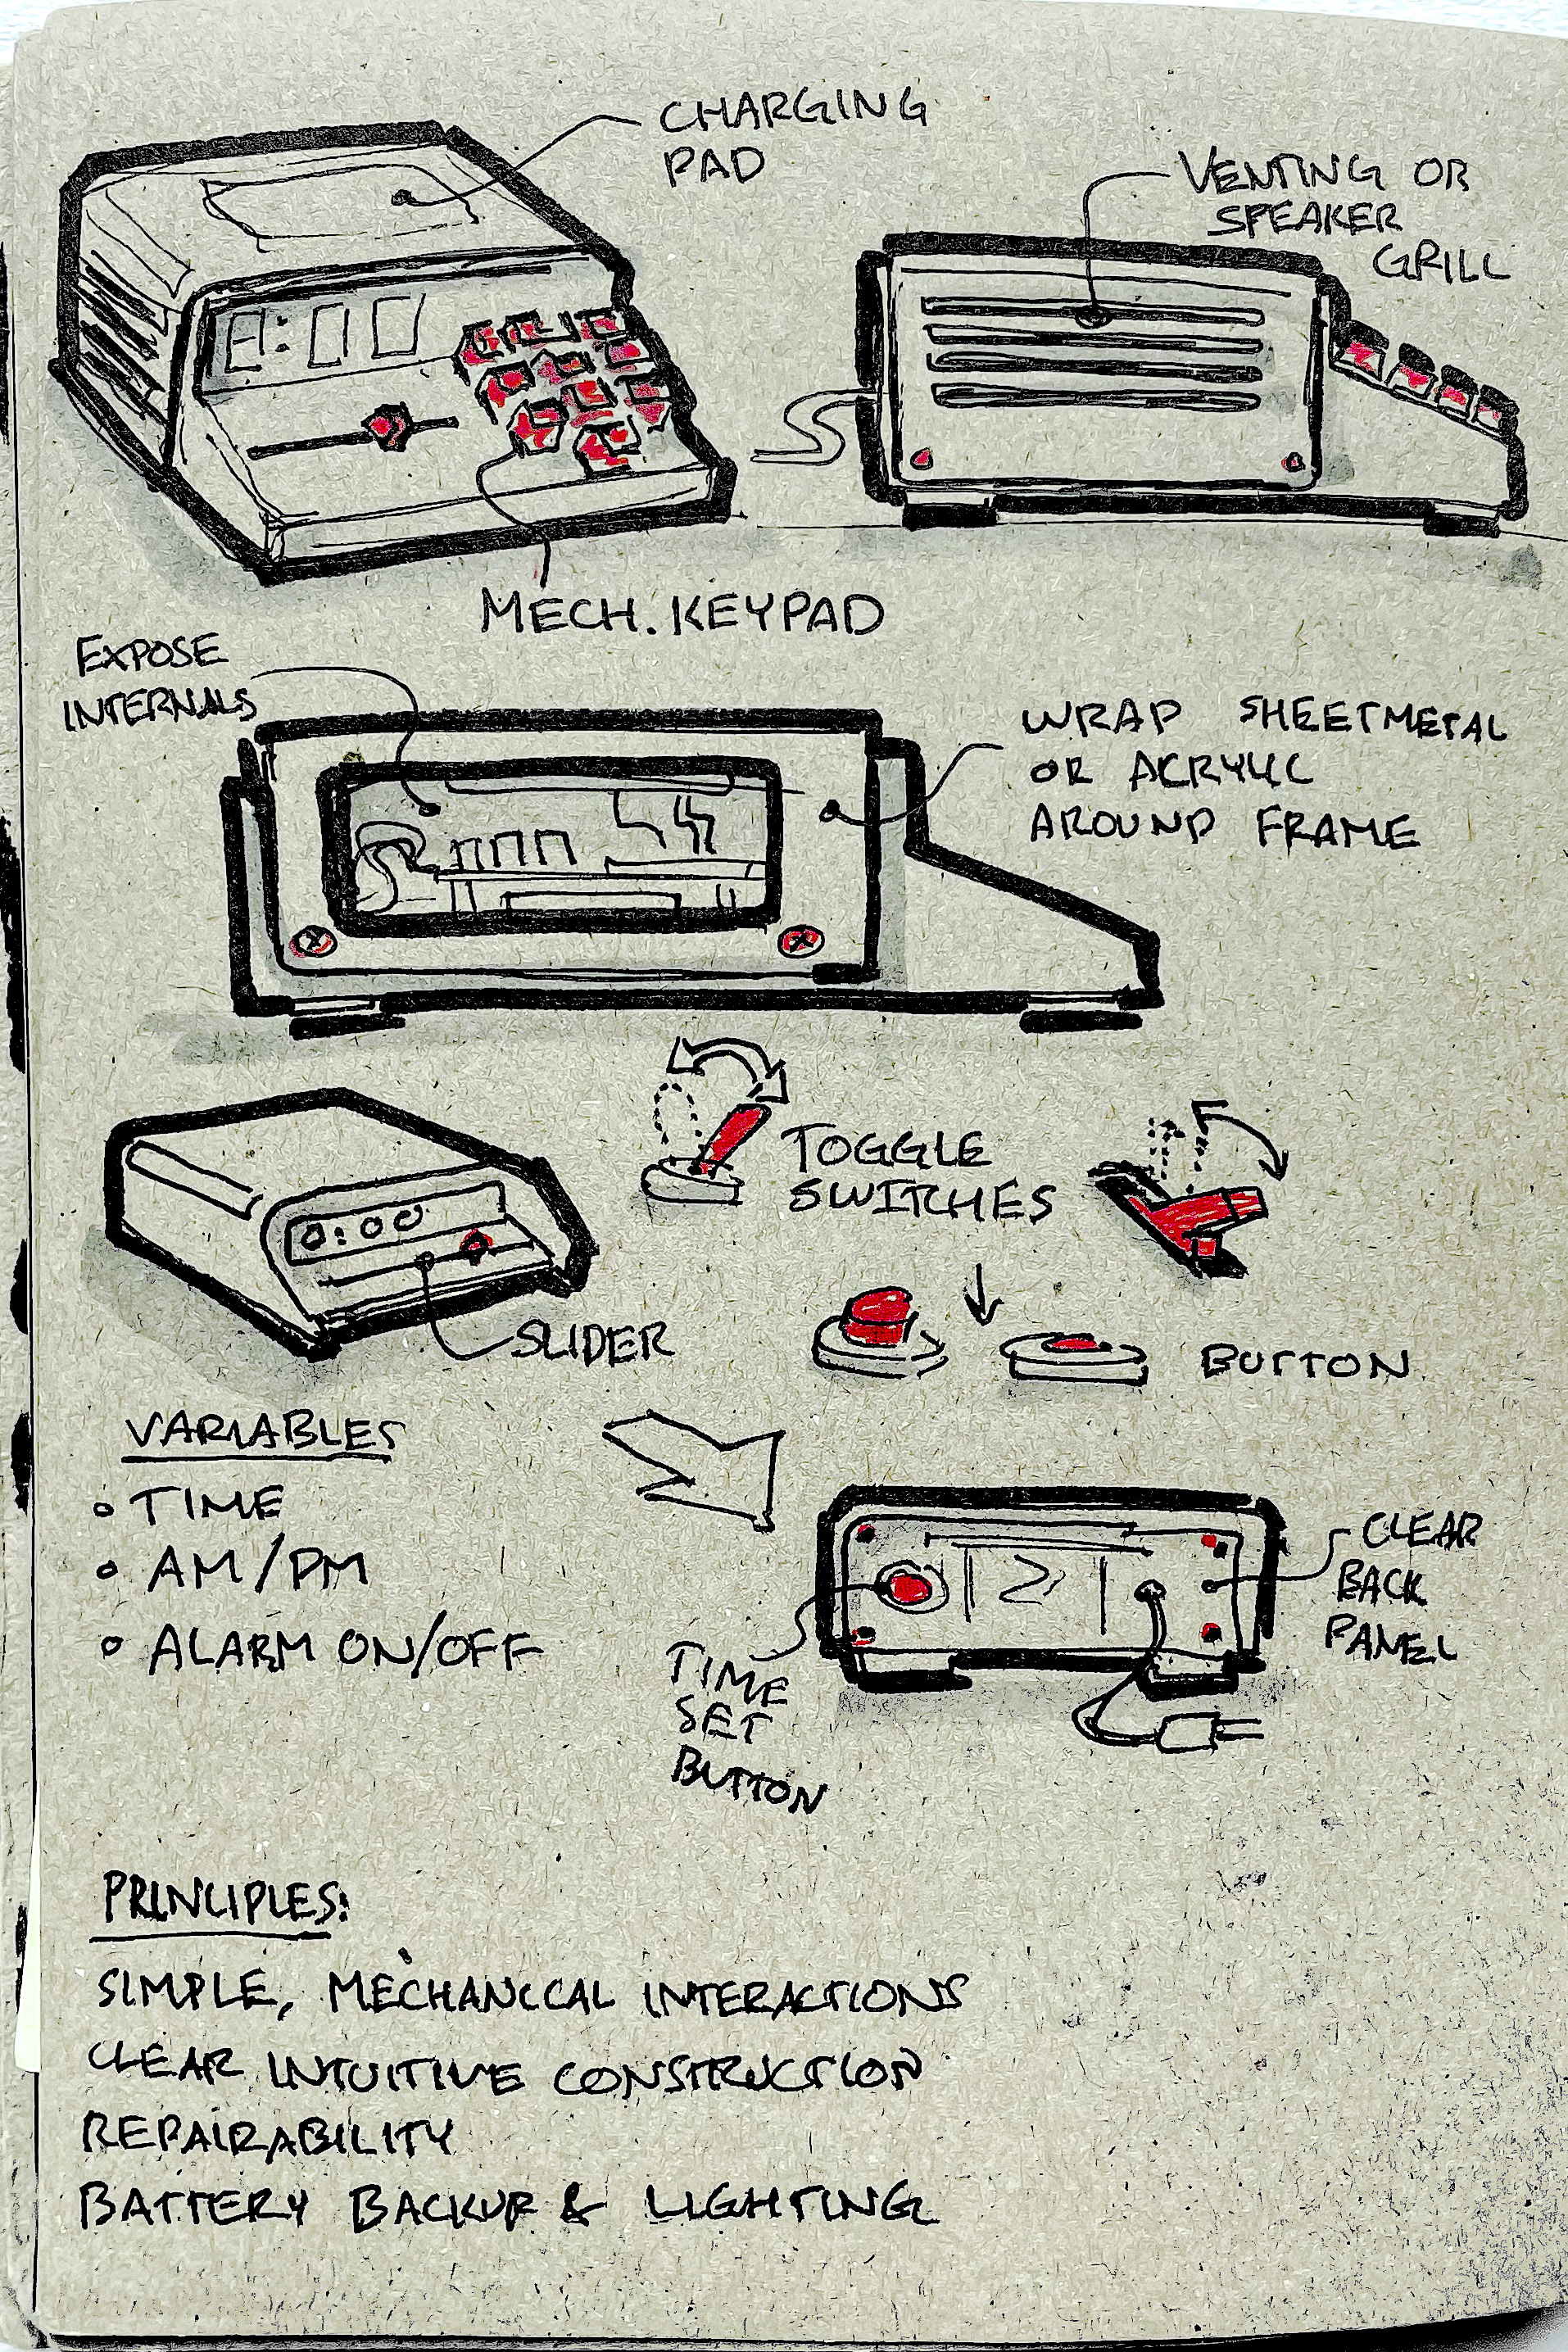 CHARGING
PAD
VENTING OR
SPEAKER
GRILL
8:00
MECH. KEYPAD
EXPOSE
INTERNALS
WRAP SHEETMETAL
OR ACRYLIC
AROUND FRAME
TOGGLE
SWITCHES
0:00
SLIDER
BUTTON
VARIABLES
◦ TIME
◦ AM/PM
◦ ALARM ON/OFF
CLEAR
BACK
PANEL
TIME
SET
BUTTON
PRINCIPLES:
SIMPLE, MECHANICAL INTERACTIONS
CLEAR INTUITIVE CONSTRUCTION
REPAIRABILITY
BATTERY BACKUP & LIGHTING